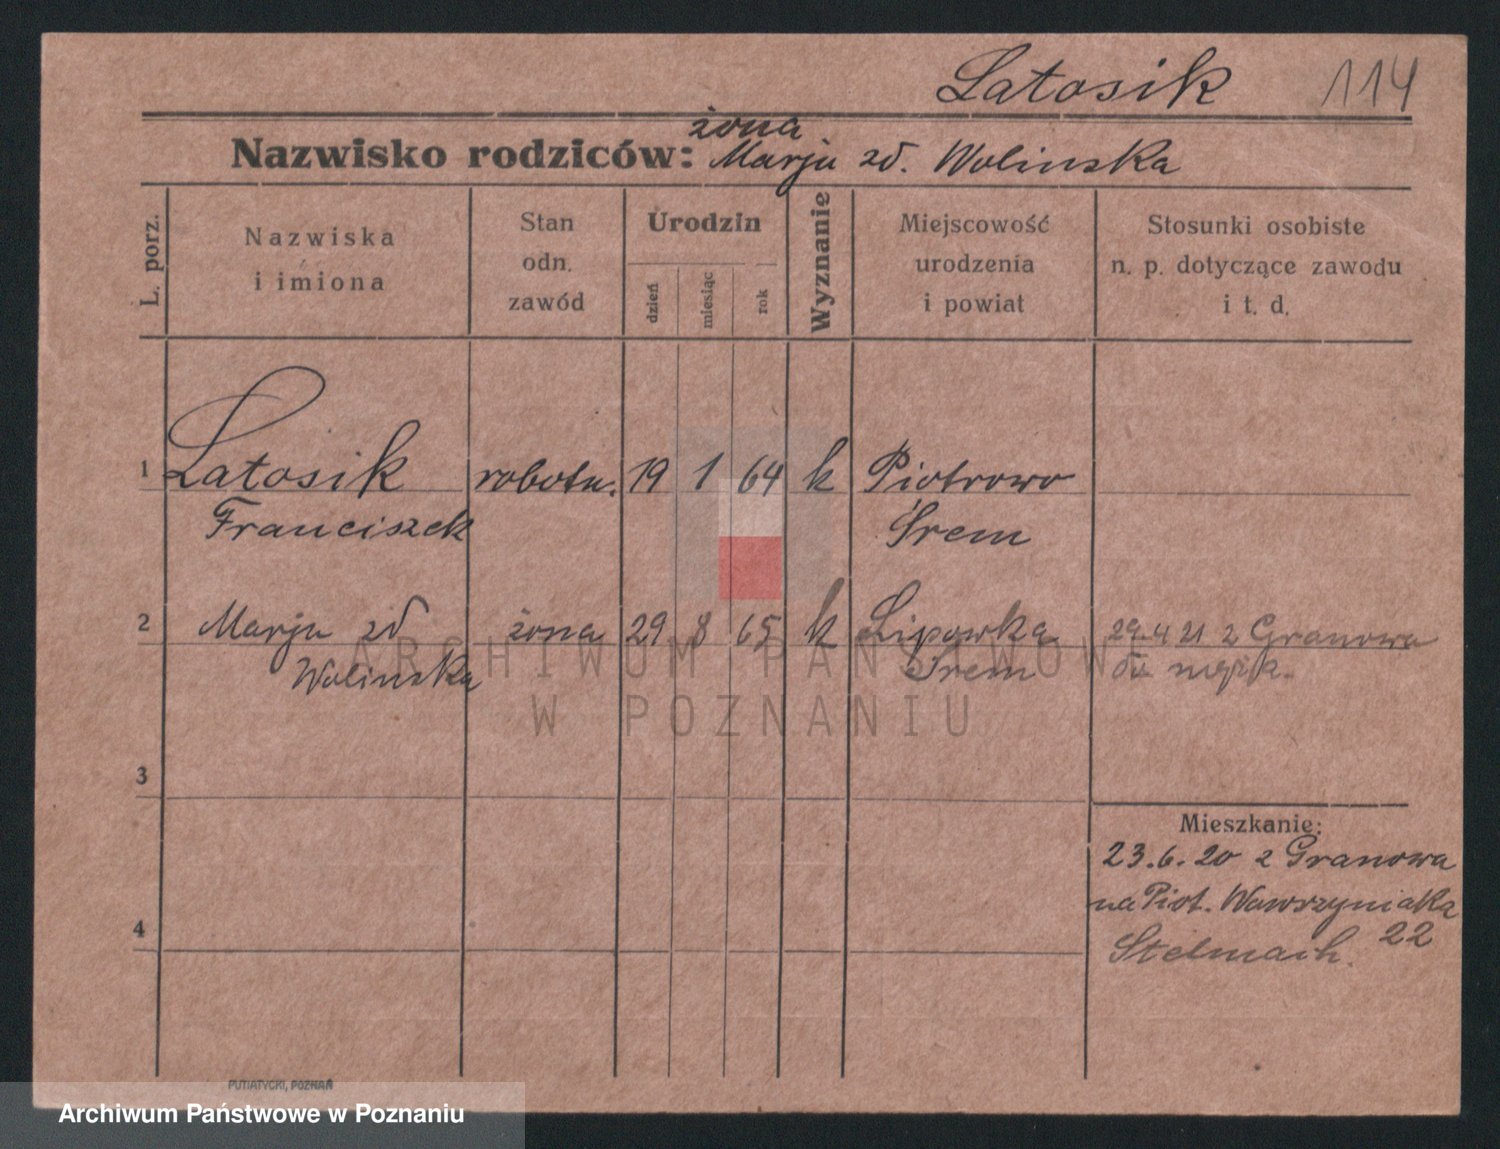 Latosik 114
żona
Nazwisko rodziców: Marja zd. Wolinska
L. porz.
Nazwiska
i imiona
Stan
odn.
zawód
Urodzin
dzień
miesiąc
rok
Wyznanie
Miejscowość
urodzenia
i powiat
Stosunki osobiste
n. p. dotyczące zawodu
i t. d.
1 Latosik robotn. 19 1 64 k Piotrowo
Franciszek Śrem
2 Marja zd żona 29 8 65 k Lipowka 29.4 21 z Granowa
Wolinska Śrem do
ARCHIWUM PAŃSTWOWE
W POZNANIU
3
Mieszkanie:
23.6.20 z Granowa
na Piot. Wawrzyniaka
22
Stelmach.
4
PUTIATYCKI, POZNAŃ
Archiwum Państwowe w Poznaniu